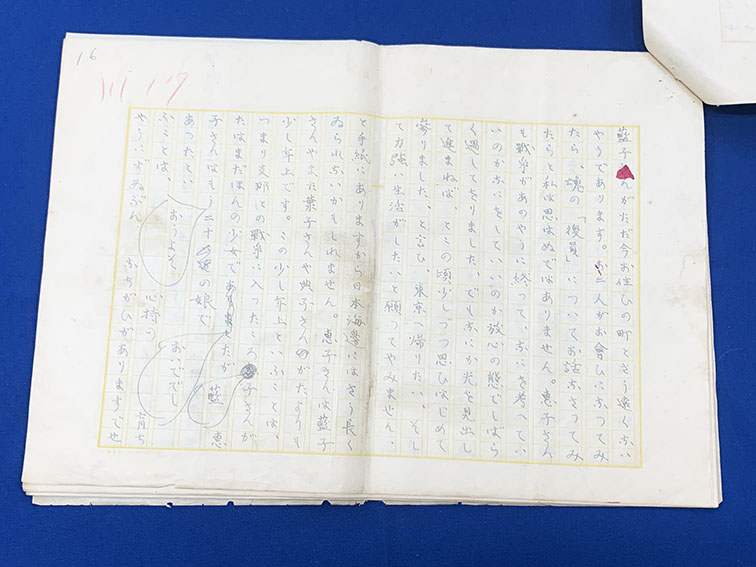 16
藍子んがただ今お住ひの町とさう遠くない
やうであります。お二人がお會ひになつてみ
たら、魂の「復員」についてお話なさつてみ
たらと私は思はぬではありません。恵子さん
も戦争があのやうに終つて、なにを考へてい
いのかなにをしていいのか放心の態でしばら
く過してをりました、でもなにか光を見出し
て進まねば、とこの頃少しづつ思ひはじめて
参りました、と言ひ、東京へ帰りたい、そし
て力強い生活がしたいと願つてやみません、
と手紙にありますから日本海邊にはさう長く
ゐられないかもしれません。恵子さんは藍子
さんやまた葉子さんや典子さんがたよりも
少し年上です。この少し年上といふことは、
つまり支那との戦争に入つたころ子さんが
たはまだほんの少女でありましたが 藍 恵
子さんはもう二十の娘で
あつたとい おうよそ おいでし
ふことは、 心持つ 育ち
やうにずゐぶん ちがひがありますでせ